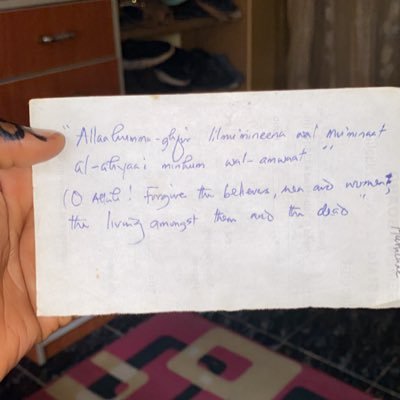 "Allaahumma-ghfir lilmu'mineena wal mu'minaat
al-ahyaa'i minhum wal-amwaat"
(O Allah! Forgive the believers, men and women,
the living amongst them and the dead"